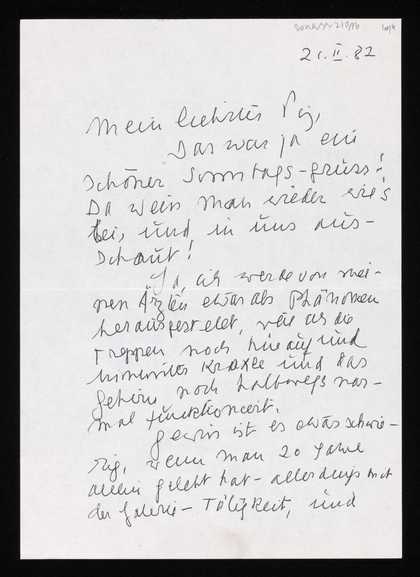 21. II. 82
Mein liebstes Pig,
Das war ja ein
schöner Sonntags-gruss!
Da weiss man wieder wie's
bei, und in uns aus-
schaut!
Ja, ich werde von mei-
nen Ärzten etwas als Phänomen
herausgestellt, weil ich die
Treppen noch hinauf und
hinunter kraxle und das
Gehirn noch halbwegs nor-
mal funktioniert.
Gewiss ist es etwas schwie-
rig, wenn man 20 Jahre
allein gelebt hat - allerdings mit
der Galerie - Tätigkeit, und